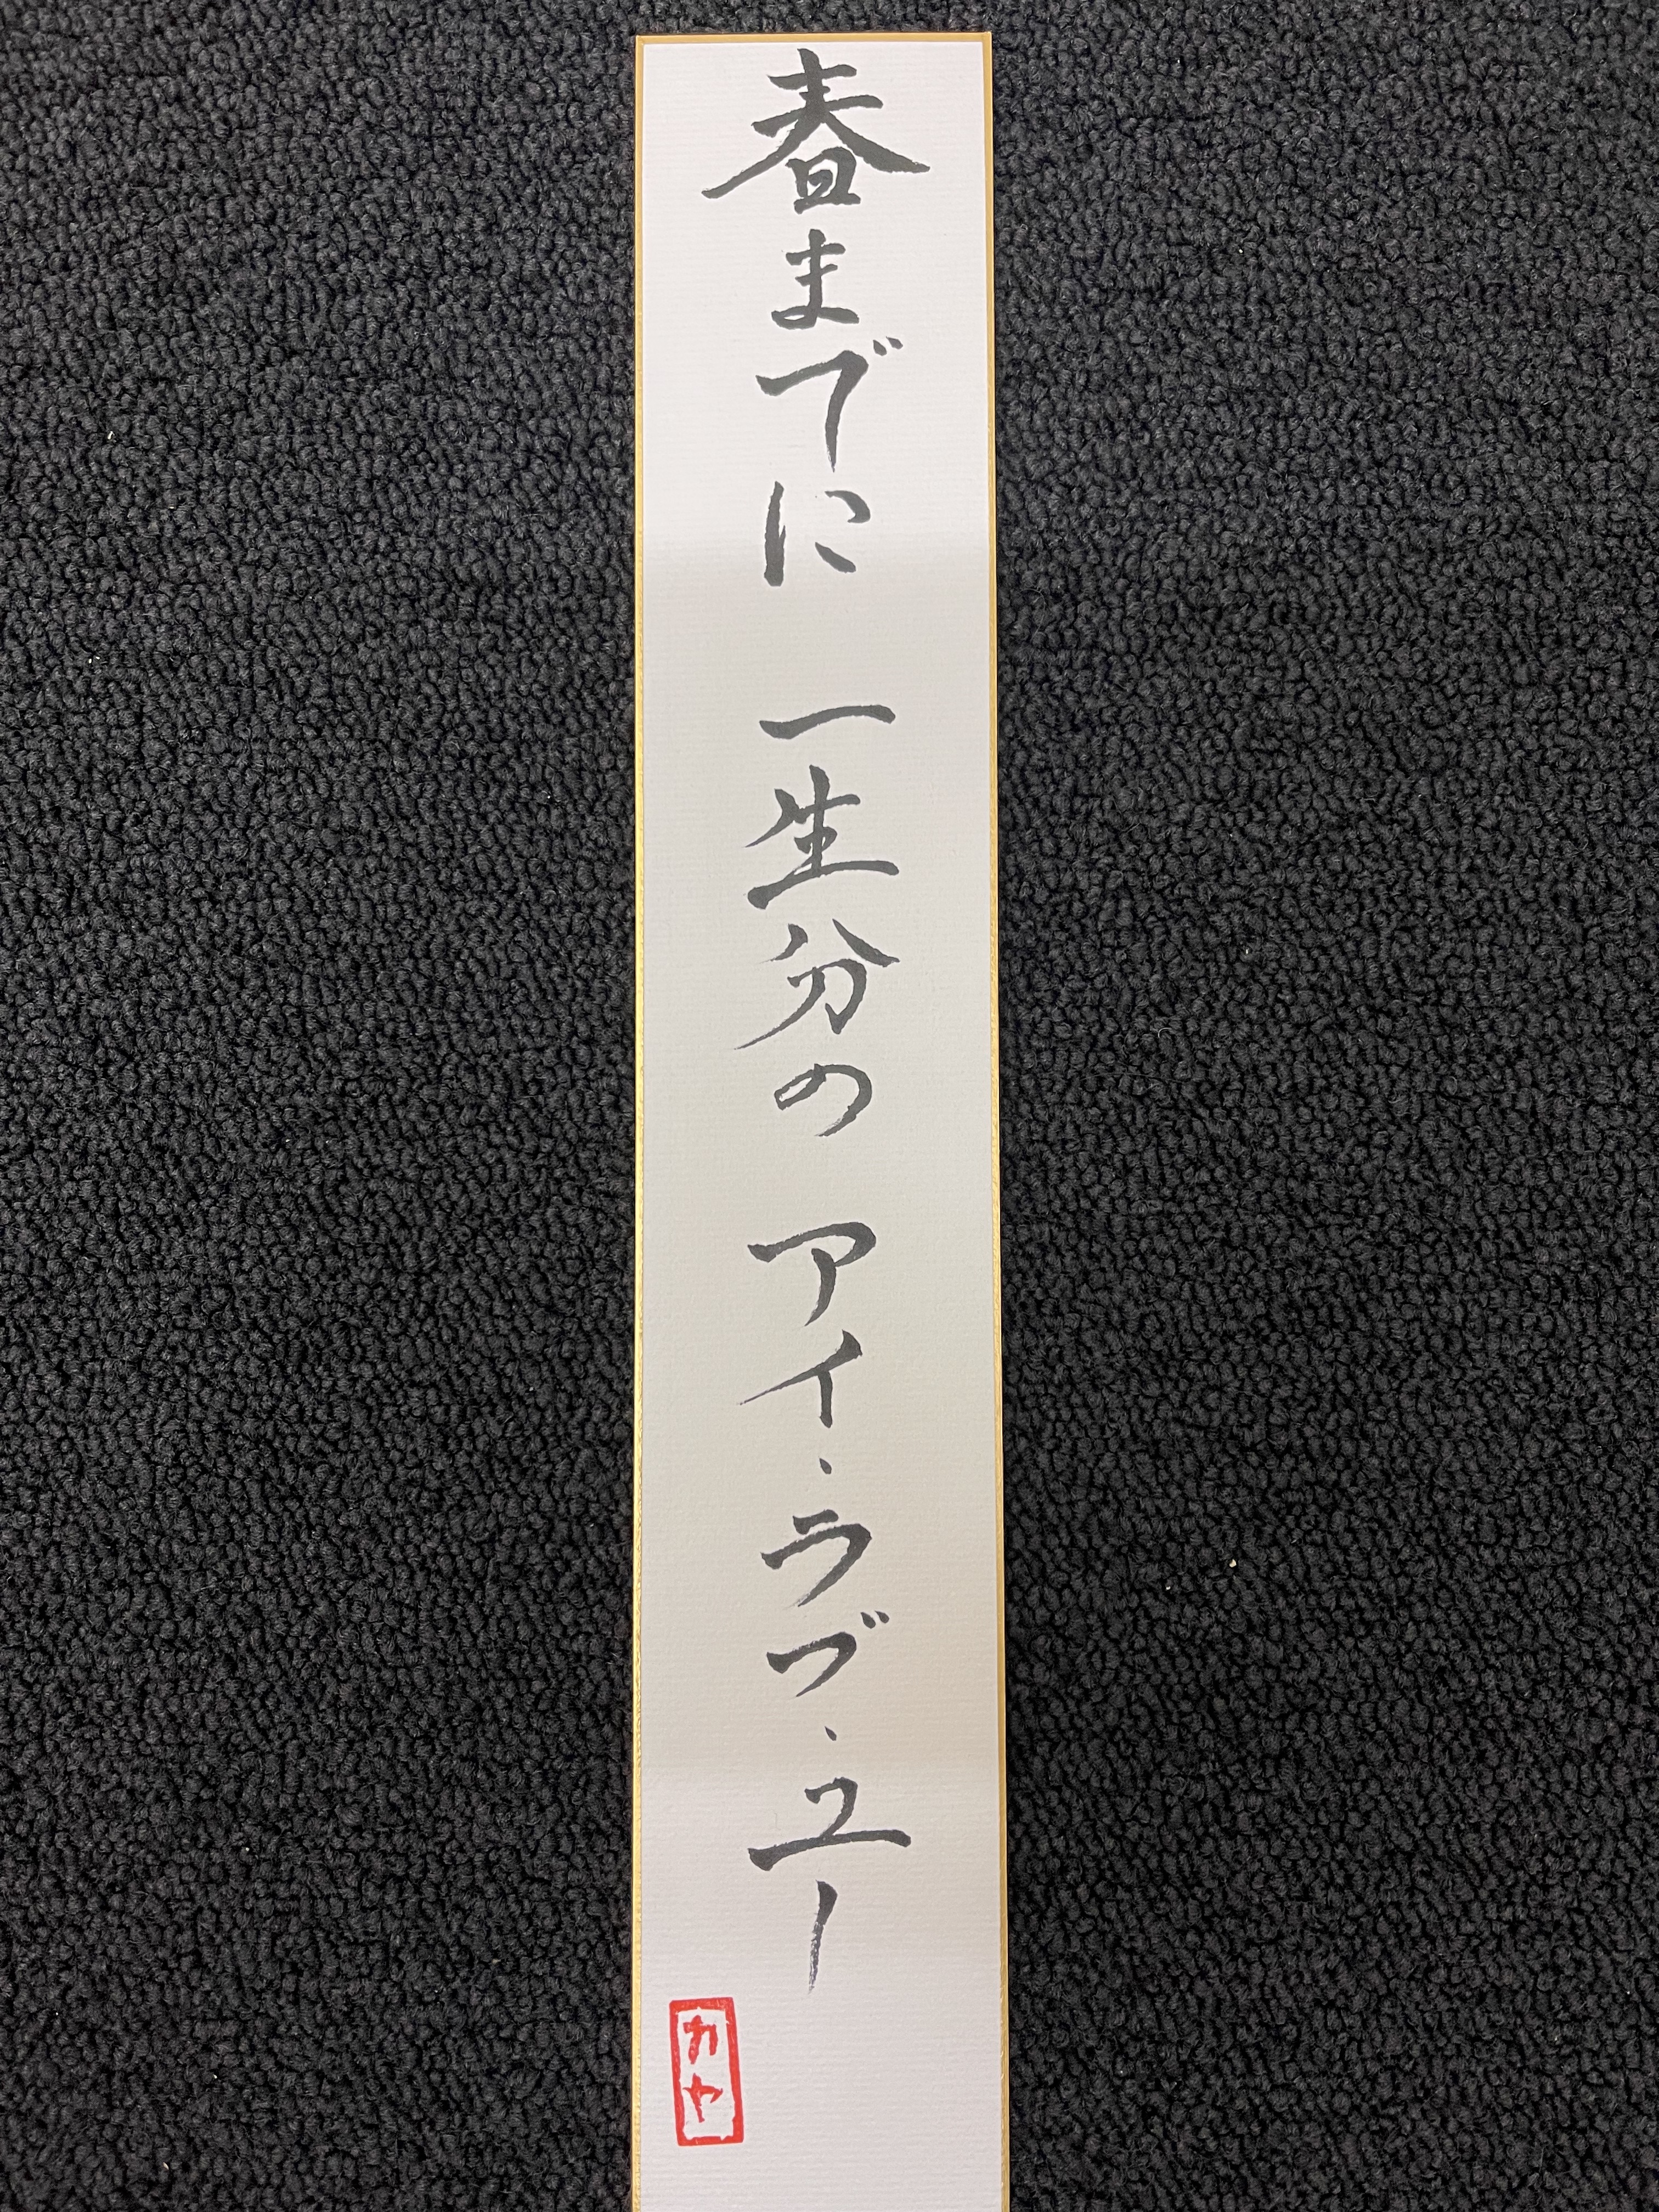 春までに 一生分の アイ・ラブ・ユー
カヤ